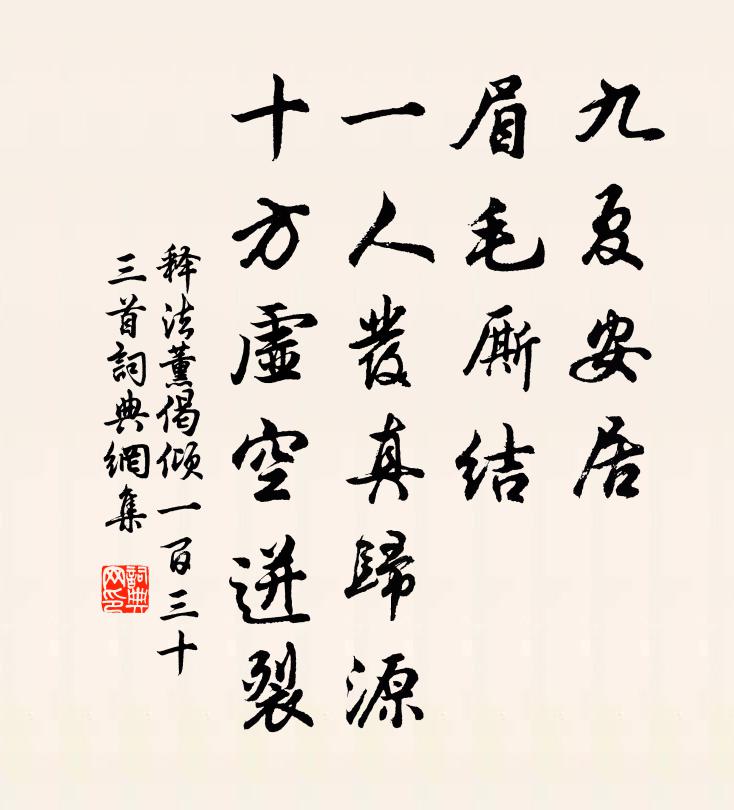 九夏安居
眉毛厮結
一人發真歸源
十方虛空迸裂
释法薰偈傾一百三十
三首詞典網集
詞典网印